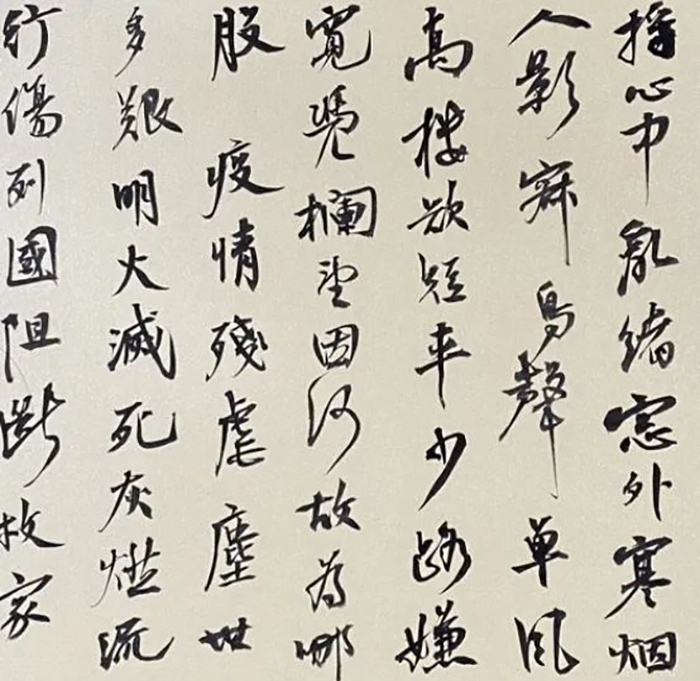 心中亂緒窓外寒烟
人影寂鳥聲單風
高樓欲短車少路嫌
寬凴欄望因何故為哪
股疫情殘虐塵世
多艱明火滅死灰燃流
行傷列國阻斷家